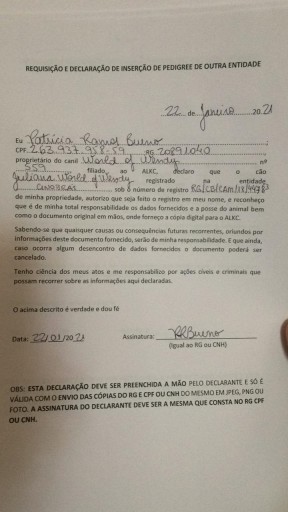 REQUISIÇÃO E DECLARAÇÃO DE INSERÇÃO DE PEDIGREE DE OUTRA ENTIDADE
22 de Janeiro 2021
Eu Patricia Ramos Bueno
CPF. 263.937.958-59 RG 20891040
proprietário do canil World of Wendy nº
559 filiado ao ALKC, declaro que o cão
Juliana World of Wendy registrado na entidade
sob o número de registro
de minha propriedade, autorizo que seja feito o registro em meu nome, e reconheço
que é de minha total responsabilidade os dados fornecidos e a posse do animal bem
como o documento original em mãos, onde forneço a cópia digital para o ALKC.
Sabendo-se que quaisquer causas ou consequências futuras recorrentes, oriundos por
informações deste documento fornecido, serão de minha responsabilidade. E que ainda,
caso ocorra algum desencontro de dados fornecidos o documento poderá ser
cancelado.
Tenho ciência dos meus atos e me responsabilizo por ações cíveis e criminais que
possam recorrer sobre as informações aqui declaradas.
O acima descrito é verdade e dou fé
Data: 22/01/2021 Assinatura: Bueno
(Igual ao RG ou CNH)
OBS: ESTA DECLARAÇÃO DEVE SER PREENCHIDA A MÃO PELO DECLARANTE E SÓ É
VÁLIDA COM O ENVIO DAS CÓPIAS DO RG E CPF OU CNH DO MESMO EM JPEG, PNG OU
FOTO. A ASSINATURA DO DECLARANTE DEVE SER A MESMA QUE CONSTA NO RG CPF
OU CNH.